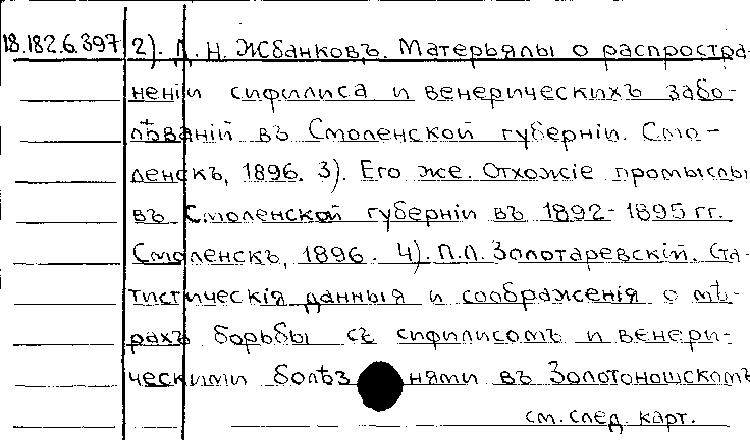 18.182.6.397 2). Д. Н. Жбанковъ. Матерьялы о распростра-
неніи сифилиса и венерическихъ забо-
лѣваній въ Смоленской губерніи. Смо-
ленскъ, 1896. 3). Его же. Отхожіе промыслы
въ Смоленской губерніи въ 1892-1895 гг.
Смоленскъ, 1896. 4). П.П. Золотаревскій. Ста-
тистическія данныя и соображенія о мѣ-
рахъ борьбы съ сифилисомъ и венери-
ческими болѣзнями въ Золотоношскомъ
см. след. карт.